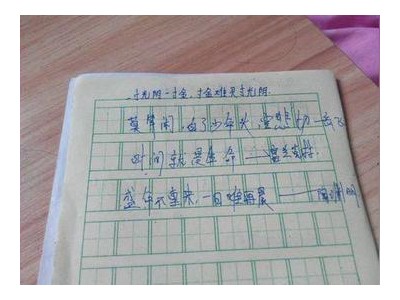 一寸光阴一寸金，寸金难买寸光阴.
莫等闲，白了少年头，空悲切—岳飞
时间就是生命——富兰克林.
盛年不重来，一日难再晨——陶渊明